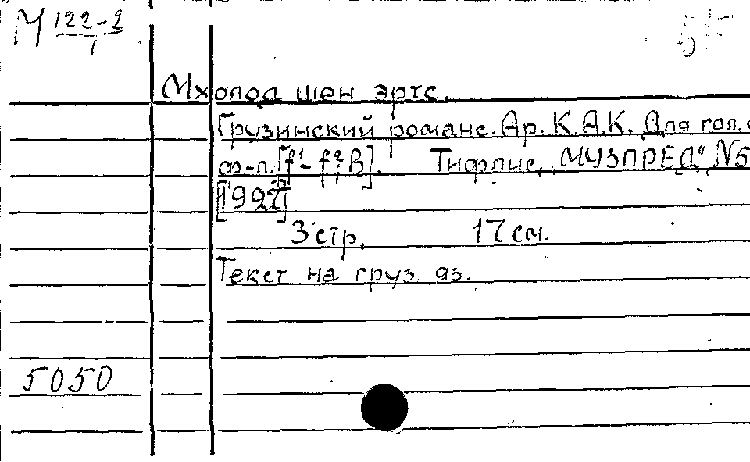 М 122-2
1
Мхолод шен эртс.
Грузинский романс. Ар. К.А.К. Для гол. с
ф-п. [f¹-f²; B]. Тифлис, „МУЗПРЕД", N5
[1927]
3 стр. 17 см.
Текст на груз. яз.
5050